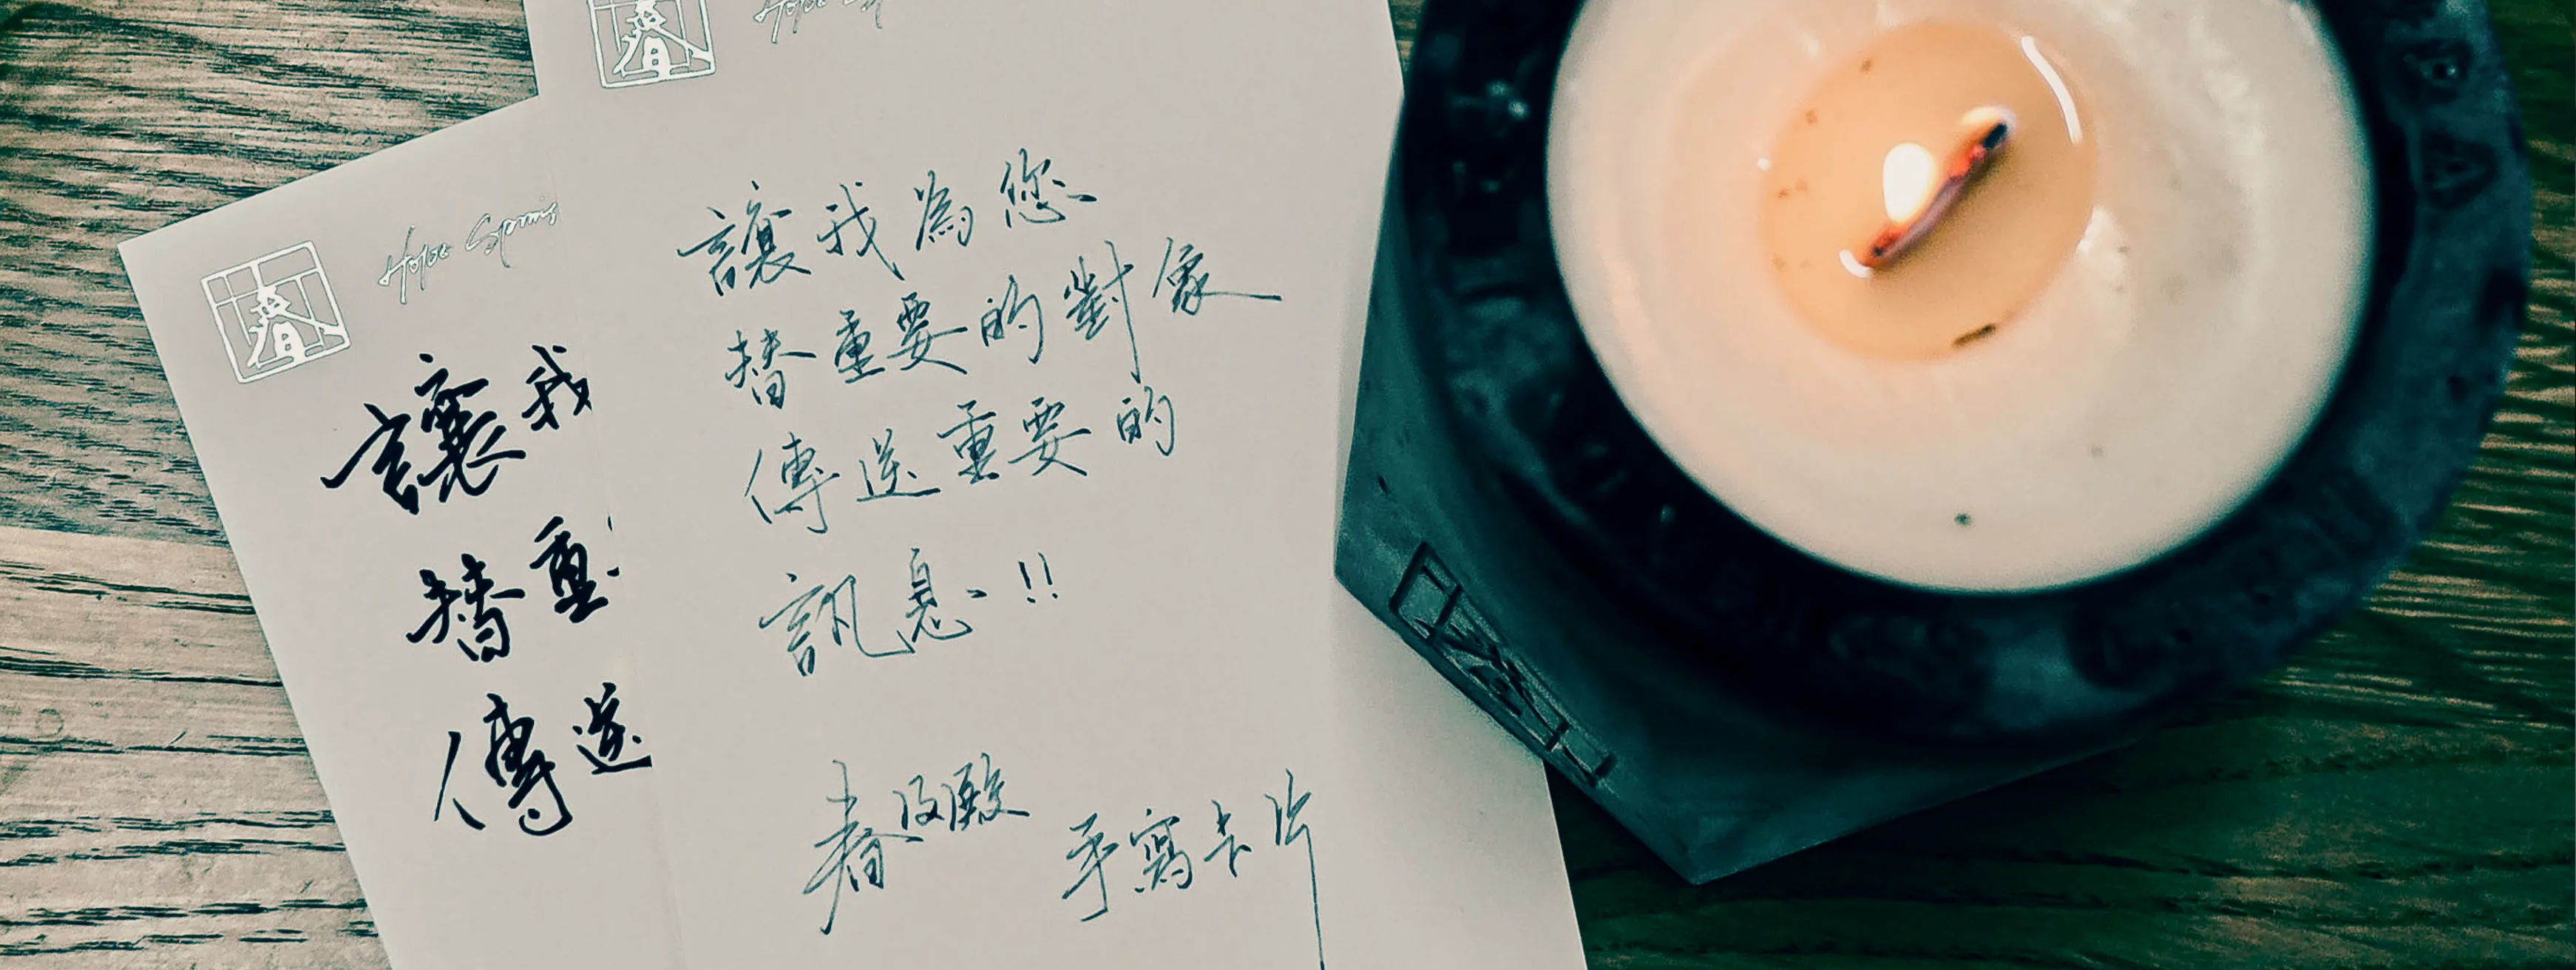 春
Hope Spring
讓我
替重
傳送
春
讓我為您
替重要的對象
傳送重要的
訊息!!
春及殿 手寫卡片